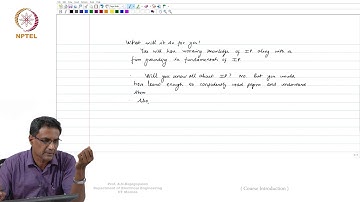 NPTEL
What will it do for you?
You will have working knowledge of IP along with a
firm grounding in fundamentals of IP.
Will you know all about IP? No. But you would
have learnt enough to confidently read papers and understand
them
Prof. A.N. Rajagopalan
Department of Electrical Engineering
IIT Madras
( Course Introduction )